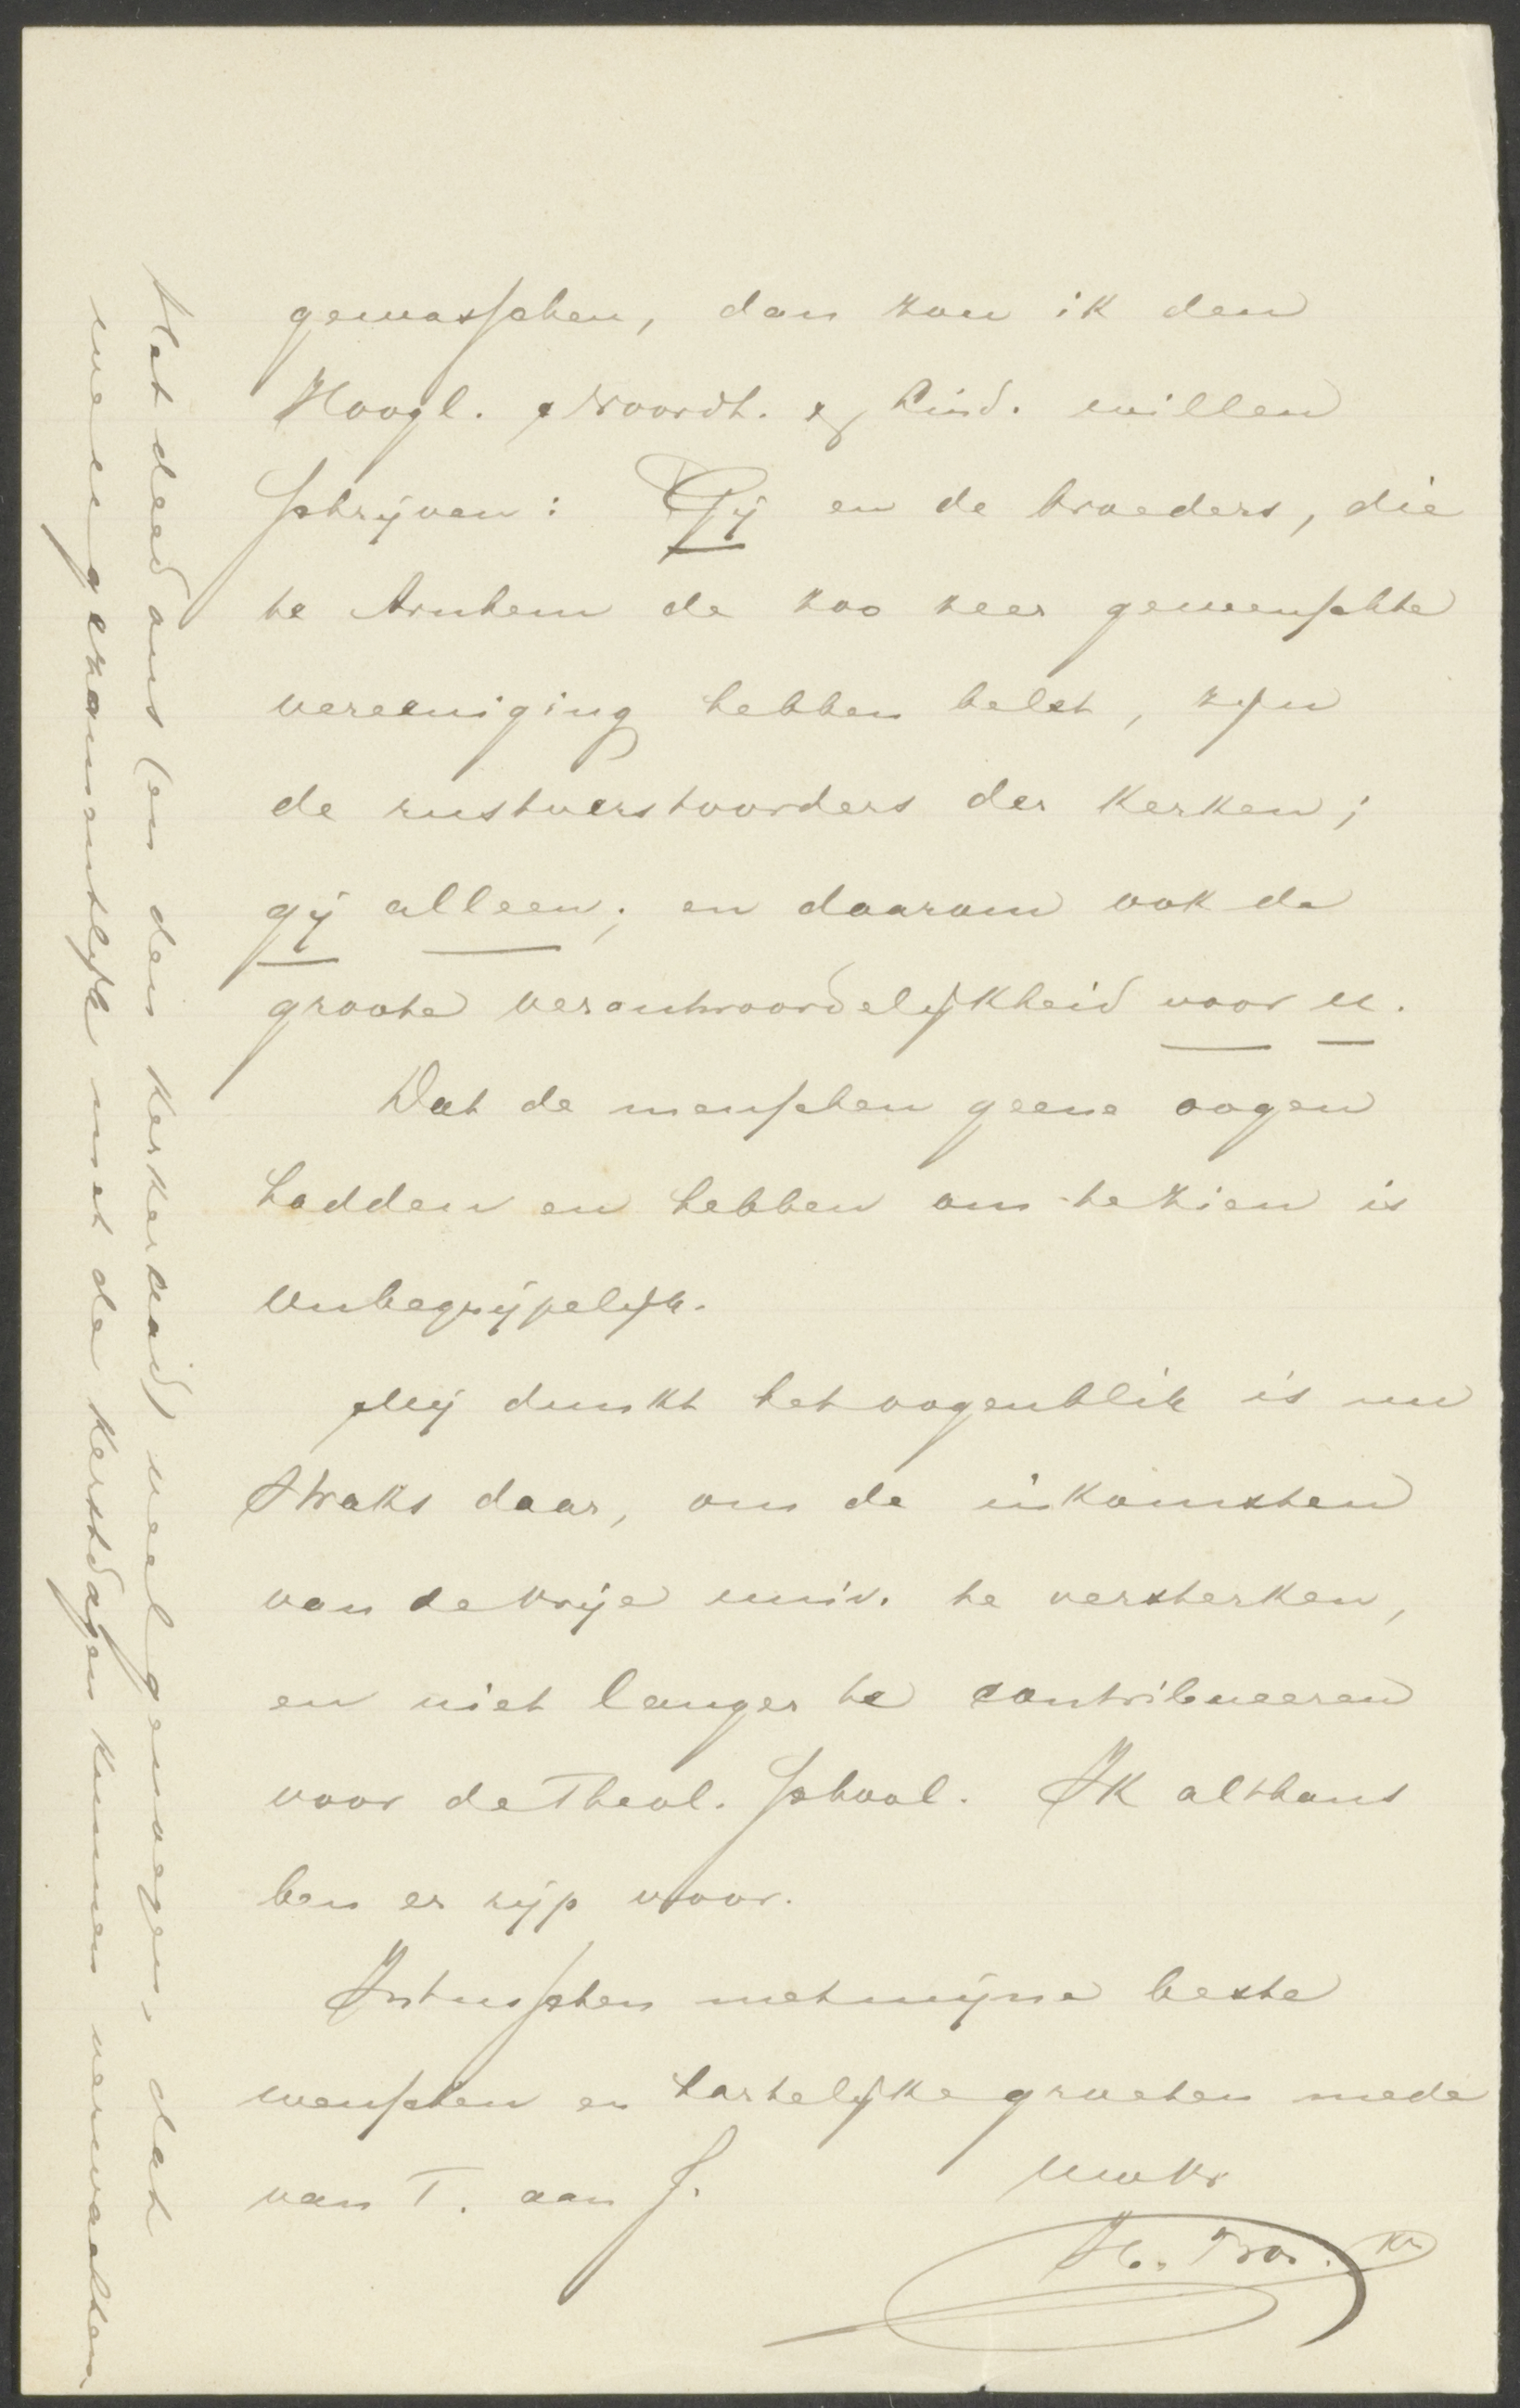 gewasschen, dan zou ik den
Hoogl. Noordt. & Lind. willen
schrijven: Gij en de broeders, die
te Arnhem de zoo zeer gewenschte
vereeniging hebben belet, zijn
de rustverstoorders der kerken;
gij alleen; en daarom ook de
groote verantwoordelijkheid voor u.
Dat de menschen geene oogen
hadden en hebben om te zien is
onbegrijpelijk.
Mij dunkt het oogenblik is nu
straks daar, om de inkomsten
van de Vrije univ. te versterken,
en niet langer te contribueeren
voor de Theol. School. Ik althans
ben er rijp voor.
Intusschen met mijne beste
wenschen en hartelijke groeten mede
van T. aan J.
uw
H.
Het deed ons (en den kerkeraad) veel genoegen, dat
we u gezamentlijk met de kerstdagen kunnen verwachten.